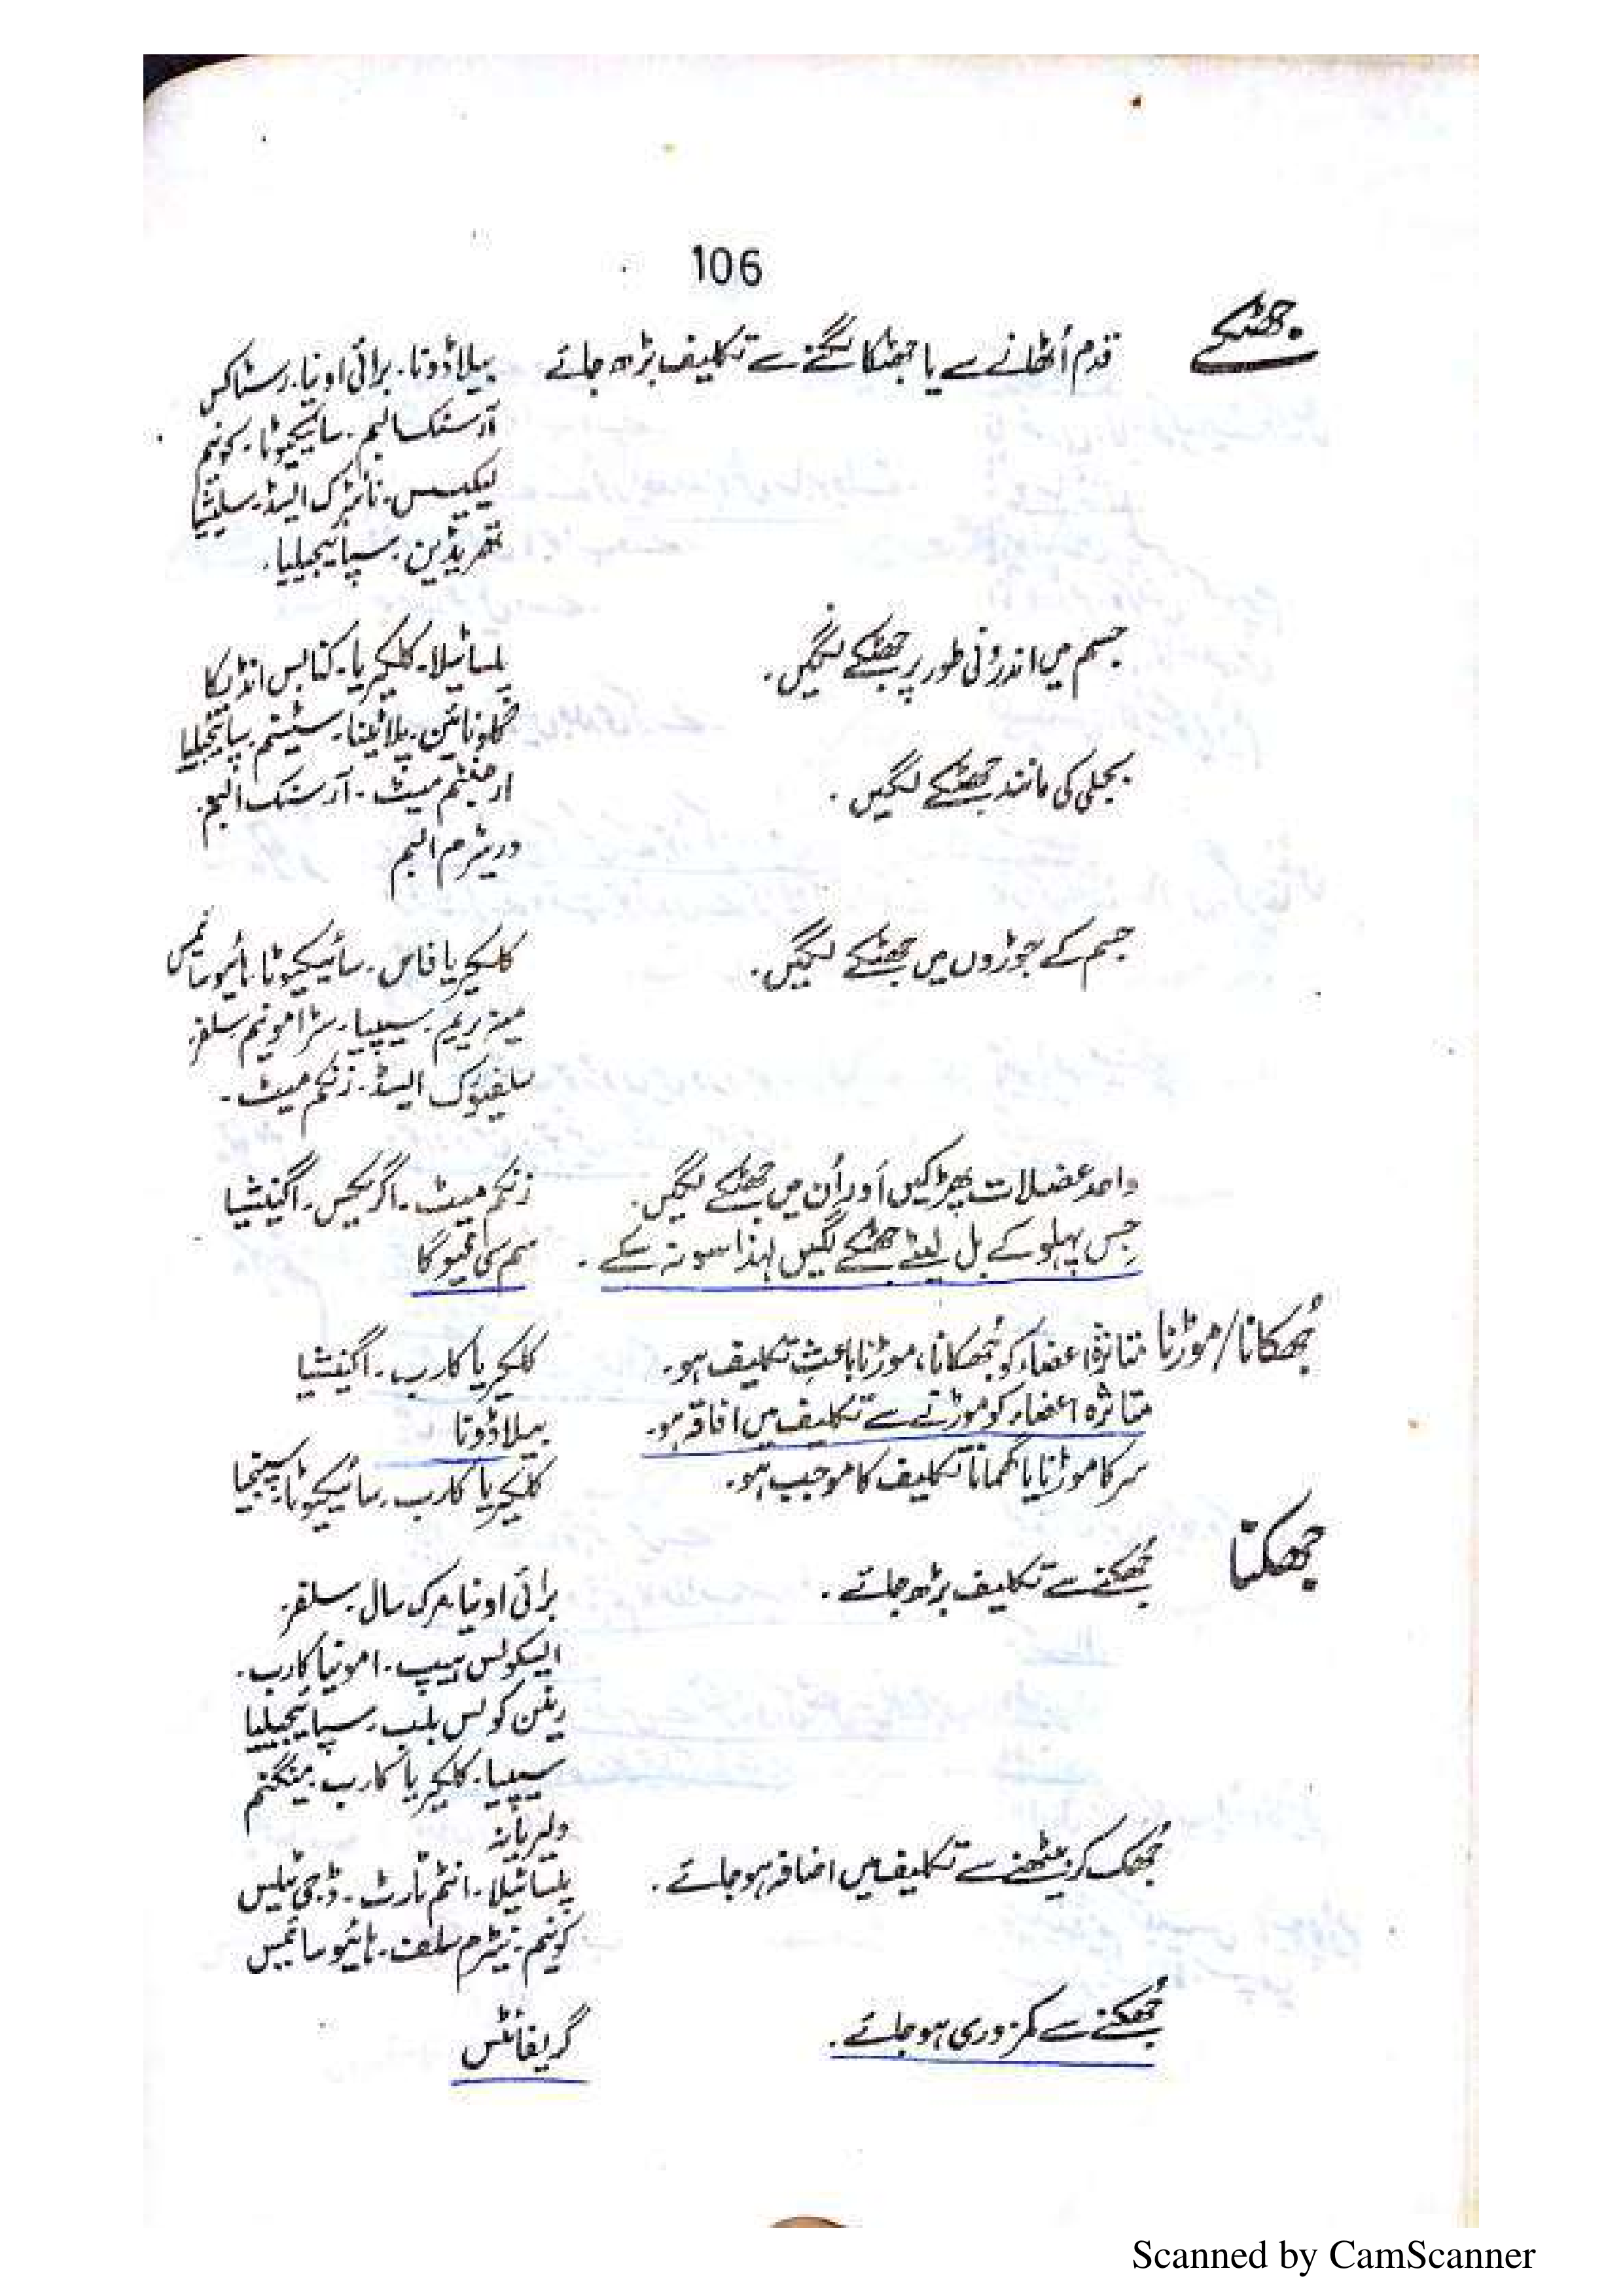 106
جھٹکے
قدم اُٹھانے سے یا جھٹکا لگنے سے تکلیف بڑھ جائے بیلاڈونا۔ برائی اونیا۔ رسٹاکس
آرسنک البم۔ سائیکیوٹا۔ کونیم
لیکیسس۔ نائٹرک ایسڈ۔ سلیشیا
تھریڈین۔ سپائیجیلیا۔
جسم میں اندرونی طور پر جھٹکے لگیں۔ پلساٹیلا۔ کلیکیریا۔ کنابس انڈیکا
گلونائین۔ پلاٹینا۔ سٹینم۔ سپائیجیلیا
بجلی کی مانند جھٹکے لگیں۔ ارجنٹم میٹ۔ آرسنک البم۔
وریٹرم البم
جسم کے جوڑوں میں جھٹکے لگیں۔ کلیکیریا فاس۔ سائیکیوٹا۔ ہائیوسائمس
میزیریم۔ سیپیا۔ سٹرامونیم۔ سلفر۔
سلفیورک ایسڈ۔ زنکم میٹ۔
واحد عضلات پھڑکیں اَور اُن میں جھٹکے لگیں۔ زنکم میٹ۔ اگریکس۔ اگنیشیا
جِس پہلو کے بل لیٹے جھٹکے لگیں لہذا سو نہ سکے۔ سم سی فیوگا
جُھکانا/موڑنا متاثرہ اعضاء کو جُھکانا، موڑنا باعثِ تکلیف ہو۔ کلیکیریا کارب۔ اگنیشیا
متاثرہ اعضاء کو موڑنے سے تکلیف میں افاقہ ہو۔ بیلاڈونا
سر کا موڑنا یا گھمانا تکلیف کا موجب ہو۔ کلیکیریا کارب۔ سائیکیوٹا۔ سپنجیا
جھکنا
جُھکنے سے تکلیف بڑھ جائے۔ برائی اونیا۔ مرک سال۔ سلفر۔
ایسکولس ہیپ۔ امونیا کارب۔
رینن کولس بلب۔ سپائیجیلیا
سیپیا۔ کلیکیریا کارب۔ مینگنم
ویلیریانہ
جُھک کر بیٹھنے سے تکلیف میں اضافہ ہو جائے۔ پلساٹیلا۔ انٹم ٹارٹ۔ ڈجی ٹیلس
کونیم۔ نیٹرم سلف۔ ہائیوسائمس
جُھکنے سے کمزوری ہو جائے۔ گریفائٹس
Scanned by CamScanner